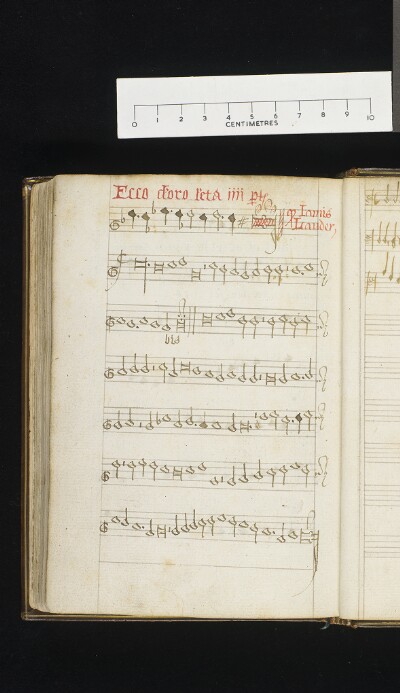 0 1 2 3 4 5 6 7 8 9 10
CENTIMETRES
Ecco d'oro l'eta iiii pts
Joannis